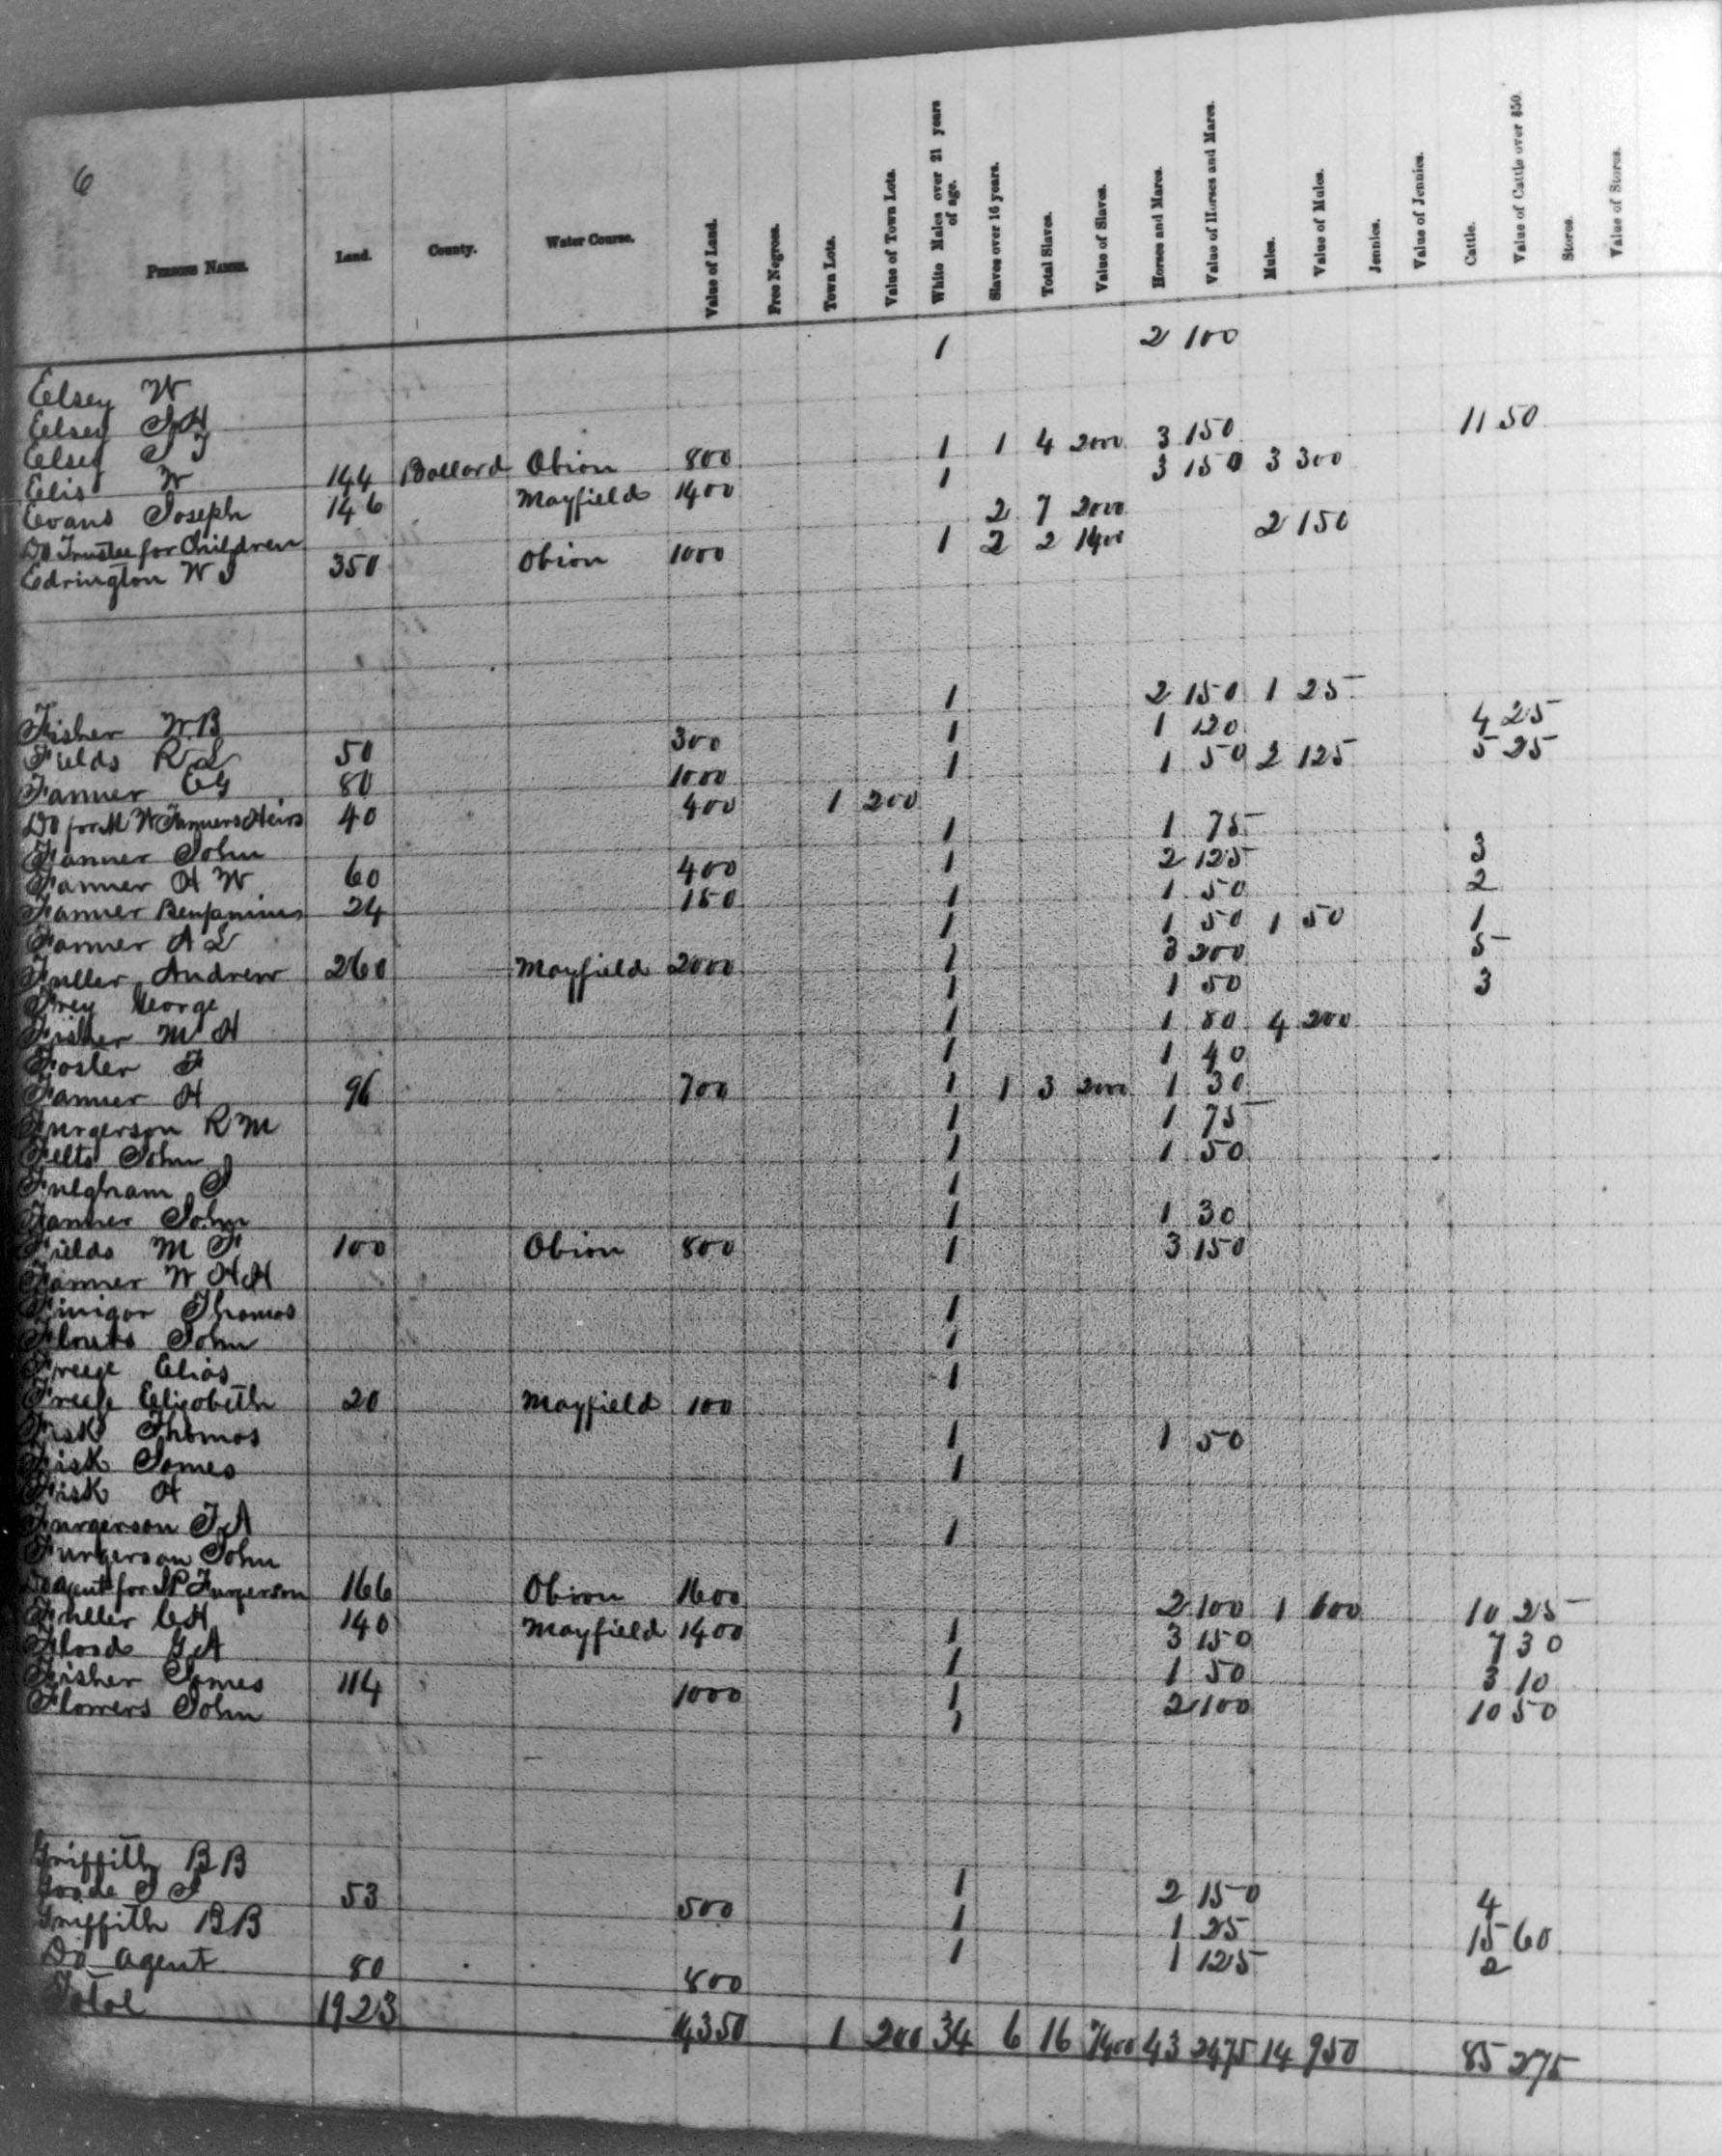 6
Persons Names. Land. County. Water Course. Value of Land. Free Negroes. Town Lots. Value of Town Lots. White Males over 21 years of age. Slaves over 16 years. Total Slaves. Value of Slaves. Horses and Mares. Value of Horses and Mares. Mules. Value of Mules. Jennies. Value of Jennies. Cattle. Value of Cattle over $50. Stores. Value of Stores.
Eelsey W 1 2 100
Eelsey J H
Eelsey S J 1 1 4 2000 3 150 11 50
Elis W 144 Ballard Obion 800 1 3 150 3 300
Evans Joseph 146 Mayfield 1400 2 7 2000
Do Trustee for Children
Edrington W J 350 Obion 1000 1 2 2 1400 2 150
Fisher W B 1 2 150 1 25
Fields R L 50 300 1 1 120 4 25
Farmer E G 80 1000 1 1 50 2 125 5 25
Do for M W Farmers Heirs 40 400 1 200
Farmer John 1 1 75
Farmer H W 60 400 1 2 125 3
Farmer Benjamin 24 150 1 1 50 2
Farmer A L 1 1 50 1 50 1
Fuller Andrew 260 Mayfield 2000 1 3 200 5
Frey George 1 1 50 3
Fisher M H 1 1 80 4 200
Foster F 1 1 40
Farmer H 96 700 1 1 3 2000 1 30
Furgerson R M 1 1 75
Felts John 1 1 50
Fulgham J 1
Farmer John 1 1 30
Fields M F 100 Obion 800 1 3 150
Farmer W H H
Thomas 1
Flouts John 1
Freege Elias 1
Elizabeth 20 Mayfield 100
Fisk Thomas 1 1 50
Fisk James 1
Fisk H
Furgerson F A 1
Furgerson John
Do agent for Furgerson 166 Obion 1600 2 100 1 600 10 25
Fuller C H 140 Mayfield 1400 1 3 150 7 30
Flood G A 1 1 50 3 10
Fisher James 114 1000 1 2 100 10 50
Flowers John 1
Griffith B B
Goode J F 53 500 1 2 150 4
Griffith B B 1 1 25 15 60
Do agent 80 800 1 1 125 2
Total 1923 14350 1 200 34 6 16 7400 43 2475 14 950 85 275